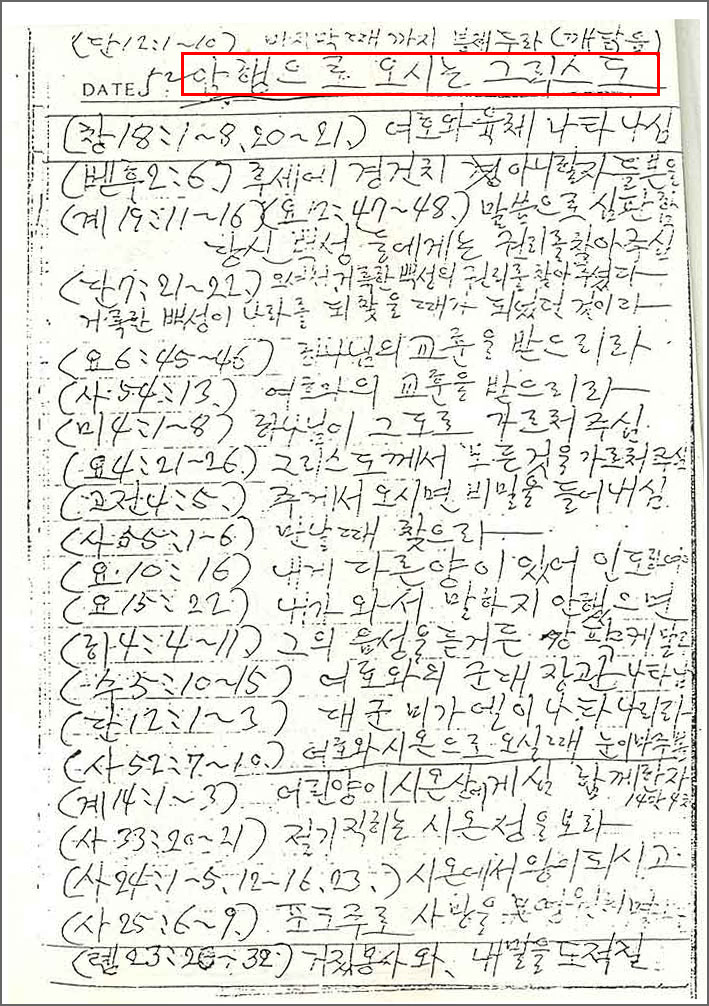 (단12:1~10) 마지막 때 까지 봉제 두라 (깨닫음)
DATE 암행으로 오시는 그리스도
(창18:1~8, 20~21,) 여호와 육체 나타나심
(벧후2:6.) 후세에 경건치 아니할자
(계19:11~16)(요12:47~48.) 말씀으로 심판
당신 백성 들에게는 권리를찾아주심
(단7:21~22.) 거룩한 백성의 권리를 찾아주셨다
거룩한 백성이 나라를 되찾을 때가 되었던 것이라
(요6:45~46) 하나님의 교훈을 받으리라
(사54:13.) 여호와의 교훈을 받으리라
(미4:1~8) 하나님이 그도로 가르쳐 주심
(요4:21~26.) 그리스도께서 모든것을 가르쳐주심
(고전4:5.) 주께서 오시면 비밀을 들어내심
(사55:1~6) 만날 때 찾으라
(요.10:16) 내게 다른 양이 있어
(요15:22) 내가 와서 말하지 안했으면
(히4:4~11.) 그의 음성을 듣거든 강퍅케 말고
(수5:10~15) 여호와의 군대 장관 나타남
(단12:1~3) 대군 미가엘이 나타나리라
(사52:7~10.) 여호와 시온으로 오실때에 눈이 마주봄
(계14:1~3) 어린양이 시온산에 계심 함께한자
(사33:20~21) 절기 직히는 시온성을 보라
(사24:1~5, 12~16, 23.) 시온에서 왕이 되시고
(사25:6~9.) 포도주로 사망을
(렘23:26~32.) 거짓몽사와, 내 말을 도적질